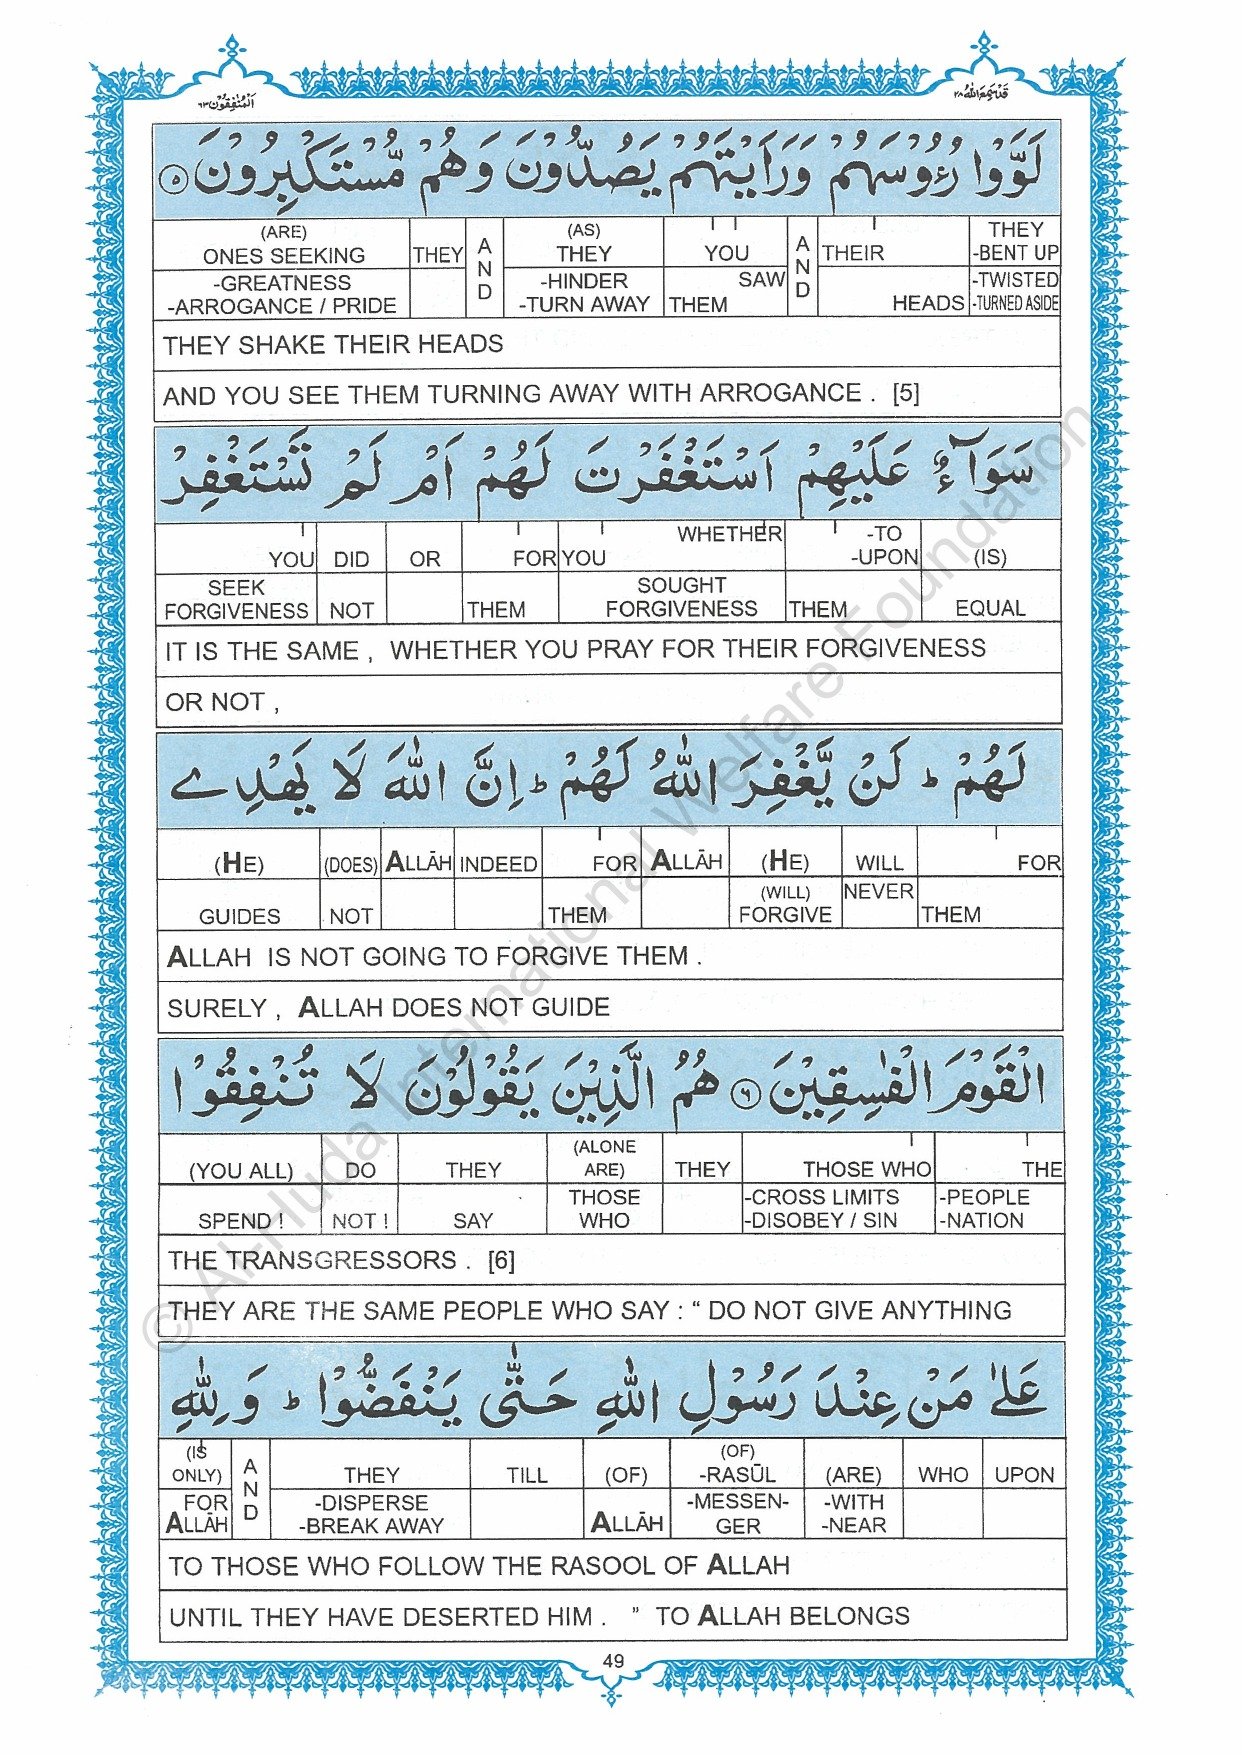 اَلْمُنٰفِقُوْن ٦٣
قَدْ سَمِعَ اللّٰهُ ٢٨
لَوَّوْا رُءُوْسَهُمْ وَرَاَيْتَهُمْ يَصُدُّوْنَ وَهُمْ مُّسْتَكْبِرُوْنَ ٥
(ARE) ONES SEEKING THEY AND (AS) THEY YOU AND THEIR THEY -BENT UP
-GREATNESS -ARROGANCE / PRIDE -HINDER -TURN AWAY SAW THEM HEADS -TWISTED -TURNED ASIDE
THEY SHAKE THEIR HEADS
AND YOU SEE THEM TURNING AWAY WITH ARROGANCE . [5]
سَوَآءٌ عَلَيْهِمْ اَسْتَغْفَرْتَ لَهُمْ اَمْ لَمْ تَسْتَغْفِرْ
YOU DID OR FOR YOU WHETHER -TO -UPON (IS)
SEEK FORGIVENESS NOT THEM SOUGHT FORGIVENESS THEM EQUAL
IT IS THE SAME , WHETHER YOU PRAY FOR THEIR FORGIVENESS
OR NOT ,
لَهُمْ ؕ لَنْ يَّغْفِرَ اللّٰهُ لَهُمْ ؕ اِنَّ اللّٰهَ لَا يَهْدِے
(HE) (DOES) ALLĀH INDEED FOR ALLĀH (HE) WILL FOR
GUIDES NOT THEM (WILL) FORGIVE NEVER THEM
ALLAH IS NOT GOING TO FORGIVE THEM .
SURELY , ALLAH DOES NOT GUIDE
الْقَوْمَ الْفٰسِقِيْنَ ٦ هُمُ الَّذِيْنَ يَقُوْلُوْنَ لَا تُنْفِقُوْا
(YOU ALL) DO THEY (ALONE ARE) THEY THOSE WHO THE
SPEND ! NOT ! SAY THOSE WHO -CROSS LIMITS -DISOBEY / SIN -PEOPLE -NATION
THE TRANSGRESSORS . [6]
THEY ARE THE SAME PEOPLE WHO SAY : “ DO NOT GIVE ANYTHING
عَلٰى مَنْ عِنْدَ رَسُوْلِ اللّٰهِ حَتّٰى يَنْفَضُّوْا ؕ وَلِلّٰهِ
(IS ONLY) AND THEY TILL (OF) (OF) -RASŪL (ARE) WHO UPON
FOR ALLĀH -DISPERSE -BREAK AWAY ALLĀH -MESSEN- GER -WITH -NEAR
TO THOSE WHO FOLLOW THE RASOOL OF ALLAH
UNTIL THEY HAVE DESERTED HIM . ” TO ALLAH BELONGS
49
© Al-Huda International Welfare Foundation